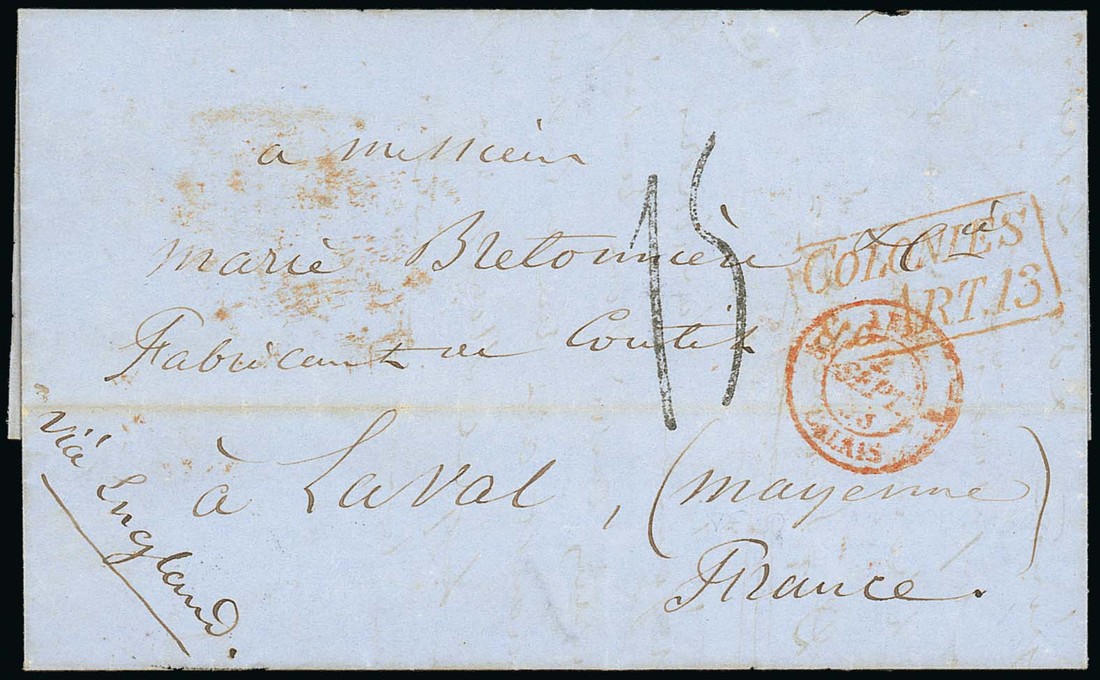 a messieurs
Marie Bretonnière & Cie
Fabricant de Coutils
à Laval, (mayenne)
France.
viâ England.
15
COLONIES
ART.13
SEPT
CALAIS